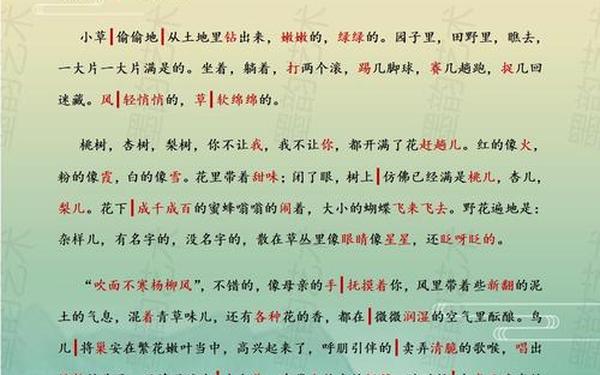 小草|偷偷地|从土地里钻出来，嫩嫩的，绿绿的。园子里，田野里，瞧去，
一大片一大片满是的。坐着，躺着，打两个滚，踢几脚球，赛几趟跑，捉几回
迷藏。风|轻悄悄的，草|软绵绵的。
桃树，杏树，梨树，你不让我，我不让你，都开满了花赶趟儿。红的像火，
粉的像霞，白的像雪。花里带着甜味；闭了眼，树上|仿佛已经满是桃儿，杏儿，
梨儿。花下|成千成百的蜜蜂嗡嗡的闹着，大小的蝴蝶飞来飞去。野花遍地是：
杂样儿，有名字的，没名字的，散在草丛里像眼睛像星星，还眨呀眨的。
“吹面不寒杨柳风”，不错的，像母亲的手|抚摸着你，风里带着些新翻的泥
土的气息，混着青草味儿，还有各种花的香，都在|微微润湿的空气里酝酿。鸟
儿|将巢安在繁花嫩叶当中，高兴起来了，呼朋引伴的|卖弄清脆的歌喉，唱出
墨韵艺术